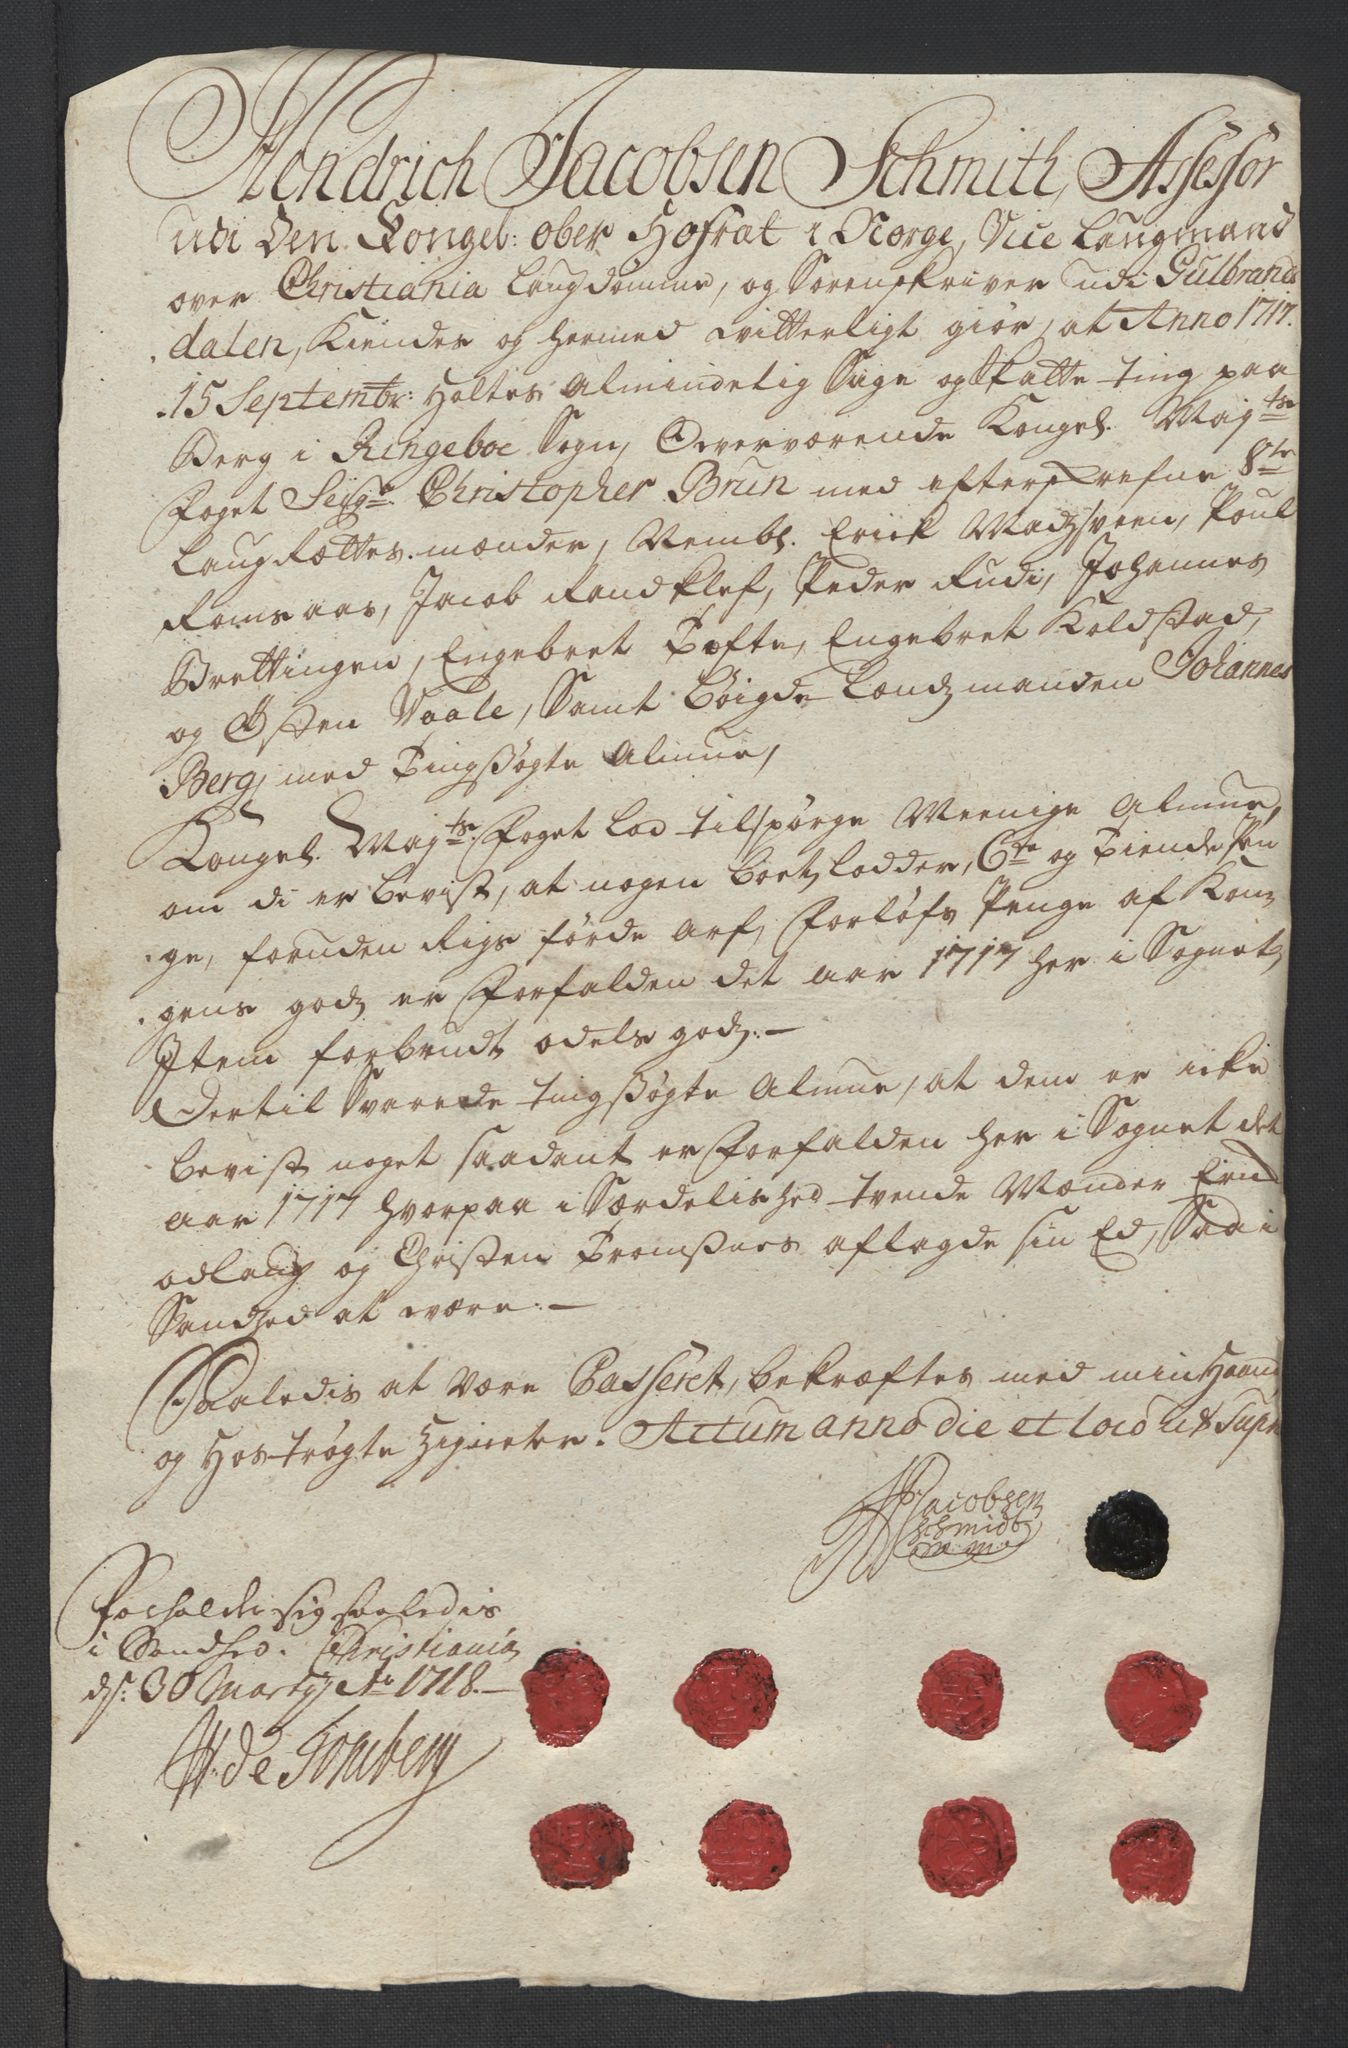 Hendrich Jacobsen Schmith, Assessor
udi den Kongel: ober Hofrat i Norge, Vice Laugmand
over Christiania Laugdømme, og Sorenskriver udi Gulbrands
dalen, Kiendes og hermed vitterligt giør, at Anno 1717.
15 Septembr: Holtes Almindelig Sage og Skatte-ting paa
Berg i Ringeboe Sogn, Overværende Kongel. Mayts
Foget Seigr. Christopher Brun med efterskrefne 8te
Laugrættes-mænder, Nembl. Erick Madzsveen, Poul
Romsaas, Jacob Randklef, Peder Rudi, Johannes
Brettingen, Engebret Tofte, Engebret Koldstad,
og Østen Vaale, Samt Bøigde Londzmanden Johannes
Berg, med Tingsøgte Almue,
Kongel. Mayts Foget lod tilspørge Meenige Almue,
om di er bevist, at nogen boetzlodder, 6te og Tiende pen
ge, foruden Rigs førde arf, Forløfs Penge af Kon
gens godz er Forfalden det aar 1717 her i Sognet,
Item forbrudt odels godz.-
Dertil Svarede tingsøgte Almue, at dem er icke
bevist noget saadant er Forfalden her i Sognet det
aar 1717 hvorpaa i Særdelished tvende Mænder Erich
odlaug og Christen Tromsnes aflagde sin Ed, Saa i
Sandhed at være.-
Saaledis at være Passeret, bekræftes med min Haand
og Hos-trøgte Zigneter. Actum anno die et loco ut supra
HJacobsen
Schmidt
m.m.
Forholder sig saaledis
i Sandhed. Christiania
ds: 30 Marty Ao 1718.-
H. de Tonsberg